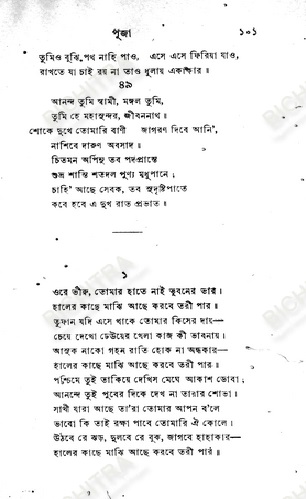 পূজা ১০১
তুমিও বুঝি পথ নাহি পাও, এসে এসে ফিরিয়া যাও,
রাখতে যা চাই রয় না তাও ধুলায় একাকার ॥
৪৯
আনন্দ তুমি স্বামী, মঙ্গল তুমি,
তুমি হে মহাসুন্দর, জীবননাথ ॥
শোকে দুখে তোমারি বাণী জাগরণ দিবে আনি,
নাশিবে দারুণ অবসাদ ॥
চিতমন অর্পিনু তব পদপ্রান্তে
শুভ্র শান্তি শতদল পুণ্য মধুপানে ;
চাহি আছে সেবক, তব সুদৃষ্টিপাতে
কবে হবে এ দুখ রাত প্রভাত ।
১
ওরে ভীরু, তোমার হাতে নাই ভুবনের ভার ।
হালের কাছে মাঝি আছে করবে তরী পার ॥
তুফান যদি এসে থাকে তোমার কিসের দায়—
চেয়ে দেখো ঢেউয়ের খেলা কাজ কী ভাবনায় ।
আসুক নাকো গহন রাতি হোক না অন্ধকার—
হালের কাছে মাঝি আছে করবে তরী পার ॥
পশ্চিমে তুই তাকিয়ে দেখিস মেঘে আকাশ ডোবা ;
আনন্দে তুই পুবের দিকে দেখ্ না তারার শোভা ।
সাথী যারা আছে তা'রা তোমার আপন ব'লে
ভাবো কি তাই রক্ষা পাবে তোমারি ঐ কোলে ।
উঠবে রে ঝড়, দুলবে রে বুক, জাগবে হাহাকার—
হালের কাছে মাঝি আছে করবে তরী পার ॥
BICHITRA